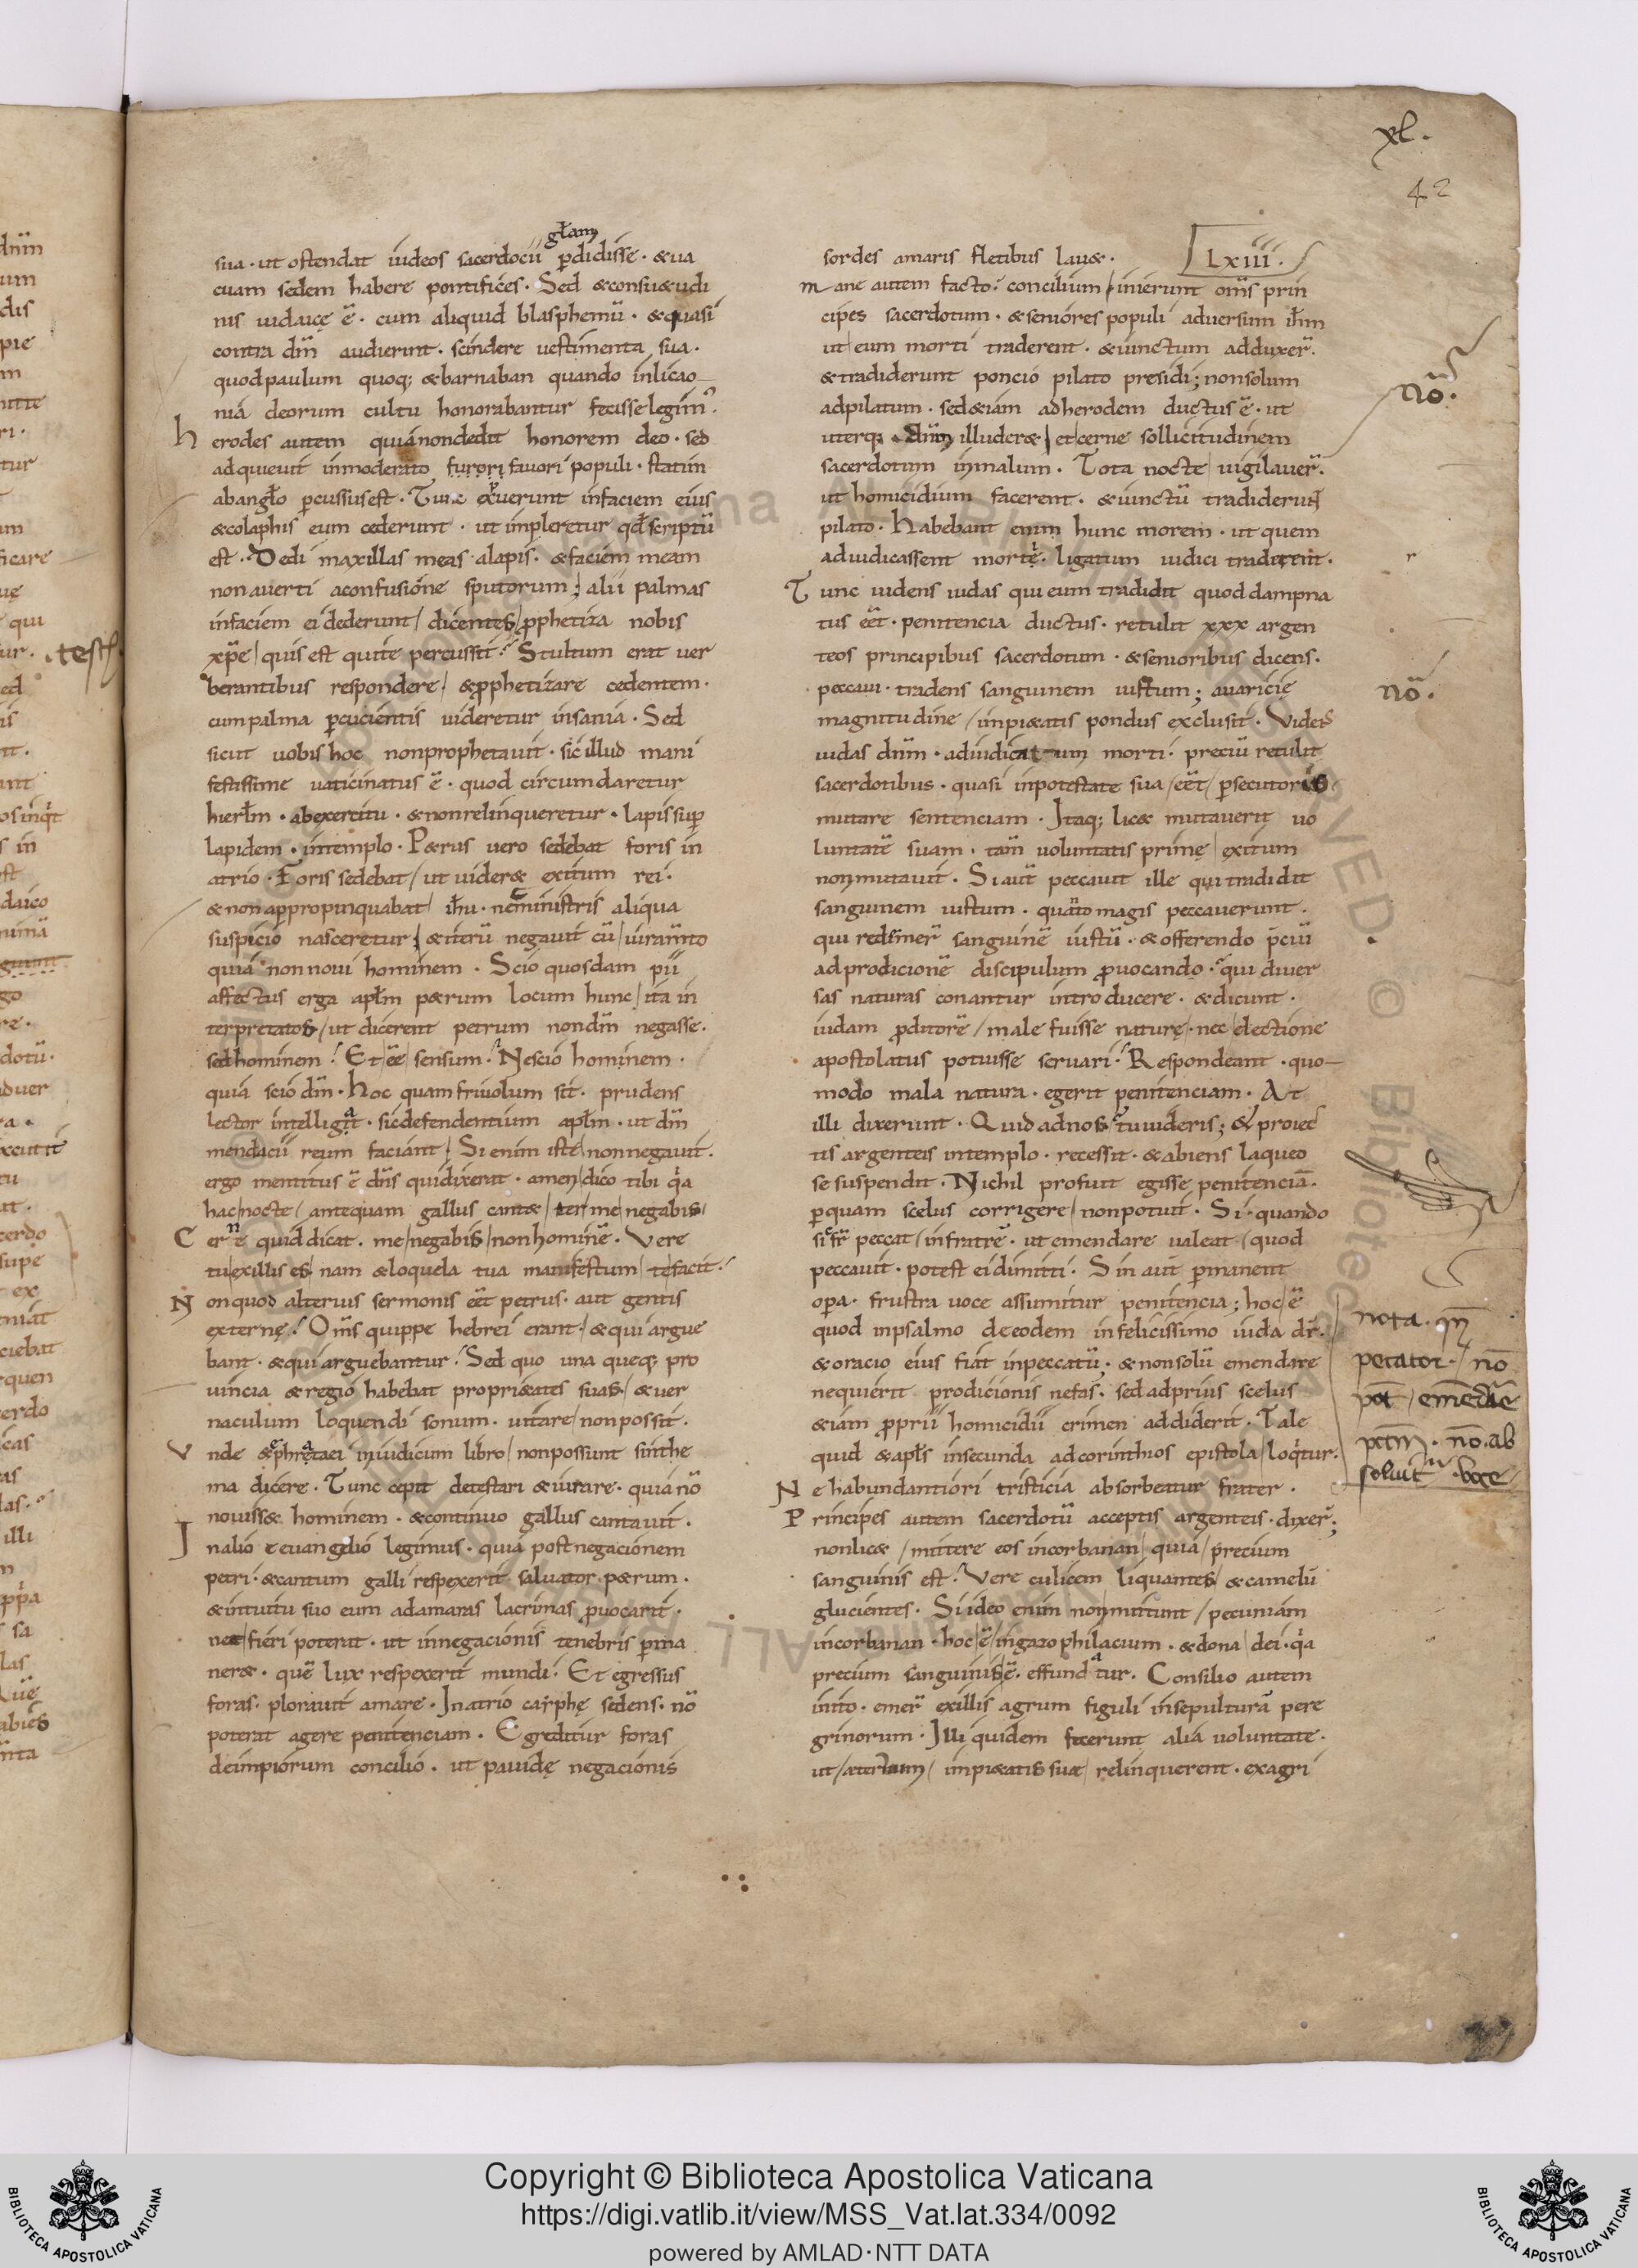 xl.
42
głam
sua · ut ostendat iudeos sacerdocii pdidisse · & ua
cuam sedem habere pontifices · Sed & consu&udi
nis iudaicę ē · cum aliquid blasphemii · & quasi
contra dm̄ audierint · scindere uestimenta sua ·
quod paulum quoq; & barnaban quando in licao
nia deorum cultu honorabantur fecisse legim9.
herodes autem quia non dedit honorem deo · sed
adquieuit inmoderato furori fauori populi · statim
ab angło pcussus est · Tunc expuerunt in faciem eius
& colaphis eum cederunt · ut impleretur qd scriptū
est · Dedi maxillas meas alapis · & faciem meam
non auerti a confusione sputorum; alii palmas
in faciem ei dederunt dicentes pphetiza nobis
xp̄e quis est qui te percussit? Stultum erat uer
berantibus respondere & pphetizare cedentem ·
cum palma pcucientis uideretur insania · Sed
sicut uobis hoc non prophetauit · sic illud mani
festissime uaticinatus ē · quod circumdaretur
hierłm · ab exercitu · & non relinqueretur · lapis sup
lapidem · in templo · P&rus uero sedebat foris in
atrio · Foris sedebat ut uider& exitum rei ·
& non appropinquabat ihu · ne ministris aliqua
suspicio nasceretur & iterū negauit cū iuramto
quia non noui hominem · Scio quosdam pii
affectus erga apłm p&rum locum hunc ita in
terpretatos ut dicerent petrum non dm̄ negasse ·
sed hominem · Et ēē sensum · Nescio hominem ·
quia scio dm̄ · Hoc quam friuolum sit · prudens
lector intelligit · sic defendentium apłm · ut dm̄
mendacii reum faciant Si enim iste non negauit ·
ergo mentitus ē dn̄s qui dixerat · amen dico tibi qa
hac nocte antequam gallus cant& ter me negabis
Cerne quid dicat · me negabis non hominē · Vere
tu ex illis es nam & loquela tua manifestum te facit ·
Non quod alterius sermonis eēt petrus · aut gentis
externę · Om̄s quippe hebrei erant · & qui argue
bant · & qui arguebantur · Sed quo una queq; pro
uincia & regio habebat propri&ates suas & uer
naculum loquendi sonum · uitare non possit ·
Vnde & ephrataei in iudicum libro non possunt sinthe
ma dicere · Tunc cepit detestari & iurare · quia nō
nouiss& hominem · & continuo gallus cantauit ·
In alio euangelio legimus · quia post negacionem
petri · & cantum galli respexerit saluator p&rum ·
& intuitu suo eum ad amaras lacrimas puocarit ·
nec fieri poterat · ut in negacionis tenebris pma
ner& · quē lux respexerit mundi · Et egressus
foras · plorauit amare · In atrio caiphę sedens · nō
poterat agere penitenciam · Egreditur foras
de impiorum concilio · ut pauidę negacionis
sordes amaris fletibus lau& ·
Lxiii ·
mane autem facto · concilium inierunt om̄s prin
cipes sacerdotum · & seniores populi aduersum ihm̄
ut eum morti traderent · & iunctum adduxer̄ ·
& tradiderunt poncio pilato presidi; non solum
ad pilatum · sed &iam ad herodem ductus ē · ut
uterq; dn̄m illuder& et cerne sollicitudinem
sacerdotum in malum · Tota nocte uigilauer̄ ·
ut homicidium facerent · & iunctū tradiderunt
pilato · Habebant enim hunc morem · ut quem
adiudicassent mortę · ligatum iudici traderent ·
Tunc uidens iudas qui eum tradidit quod dampna
tus eēt · penitencia ductus · retulit xxx argen
teos principibus sacerdotum · & senioribus dicens ·
peccaui · tradens sanguinem iustum; auaricię
magnitudine impi&atis pondus exclusit · Videns
iudas dn̄m · adiudicatum morti · preciū retulit
sacerdotibus · quasi in potestate sua eēt psecutoris
mutare sentenciam · Itaq; lic& mutauerit uo
luntatē suam · tam̄ uoluntatis primę exitum
non mutauit · Si aut̄ peccauit ille qui tradidit
sanguinem iustum · quāto magis peccauerunt ·
qui redimer̄ sanguinē iustū · & offerendo pciū
ad prodicionē discipulum puocando · qui diuer
sas naturas conantur introducere · & dicunt ·
iudam pditorē male fuisse naturę · nec electione
apostolatus potuisse seruari · Respondeant · quo
modo mala natura · egerit penitenciam · At
illi dixerunt · Quid ad nos tu uideris; & proiec
tis argenteis in templo · recessit · & abiens laqueo
se suspendit · Nichil profuit egisse penitenciā ·
p quam scelus corrigere non potuit · Si quando
sic fr̄ peccat in fratrē · ut emendare ualeat quod
peccauit · potest ei dimitti · Sin aut̄ pmanent
opa · frustra uoce assumitur penitencia; hoc ē
quod in psalmo de eodem infelicissimo iuda dr̄ ·
& oracio eius fiat in peccatū · & non solū emendare
nequierit prodicionis nefas · sed ad prius scelus
&iam proprii homicidii crimen addiderit · Tale
quid & apls in secunda ad corinthios epistola loqtur ·
Ne habundantiori tristicia absorbeatur frater ·
Principes autem sacerdotū acceptis argenteis · dixer̄;
non lic& mittere eos in corbanan quia precium
sanguinis est · Vere culicem liquantes & camelū
glucientes · Si ideo enim non mittunt pecuniam
in corbanan · hoc ē in gazophilacium · & dona dei · qa
precium sanguinis ē · effundatur · Consilio autem
inito · emer̄ ex illis agrum figuli in sepulturā pere
grinorum · Illi quidem fecerunt alia uoluntate ·
ut aeternum impi&atis suae relinquerent · ex agri
nō ·
nō ·
r
nota · qn
petator · nō
pot emēdāe
pctm̄ · nō · ab
soluit · boce
Copyright © Biblioteca Apostolica Vaticana
https://digi.vatlib.it/view/MSS_Vat.lat.334/0092
powered by AMLAD·NTT DATA
BIBLIOTECA APOSTOLICA VATICANA
BIBLIOTECA APOSTOLICA VATICANA